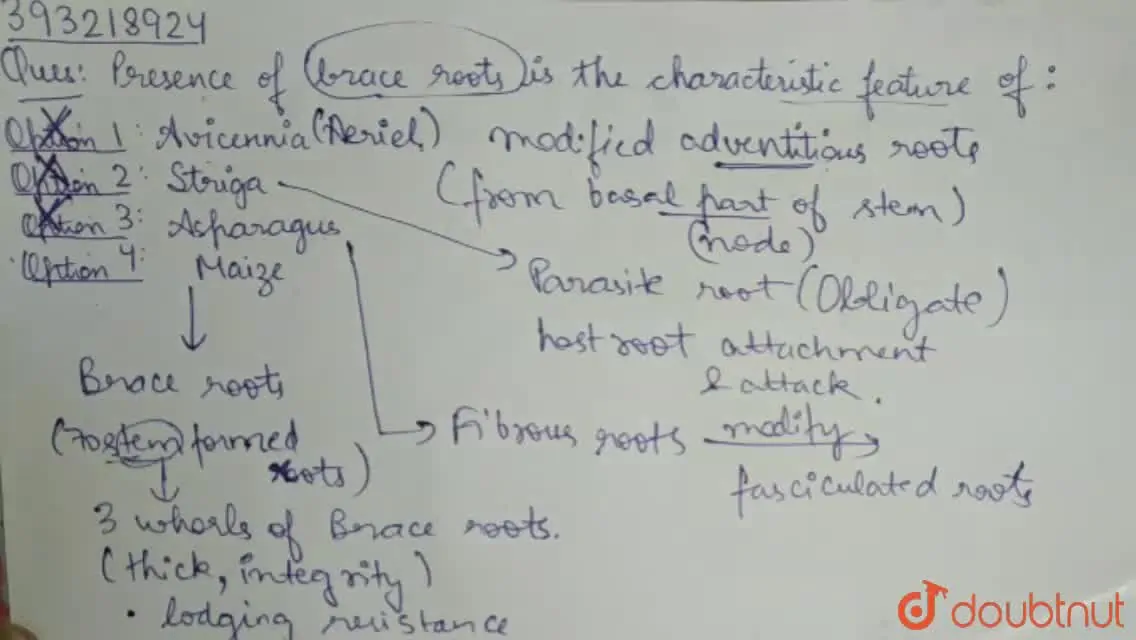 393218924
Ques: Presence of brace roots is the characteristic feature of:
Option 1: Avicennia (Aeriel) modified adventitious roots
Option 2: Striga (from basal part of stem)
(node)
Option 3: Asparagus
Option 4: Maize
Parasite root (Obligate)
host root attachment
& attack.
Brace roots
(stem formed
roots)
Fibrous roots modify
fasciculated roots
3 whorls of Brace roots.
(thick, integrity)
• lodging resistance
doubtnut